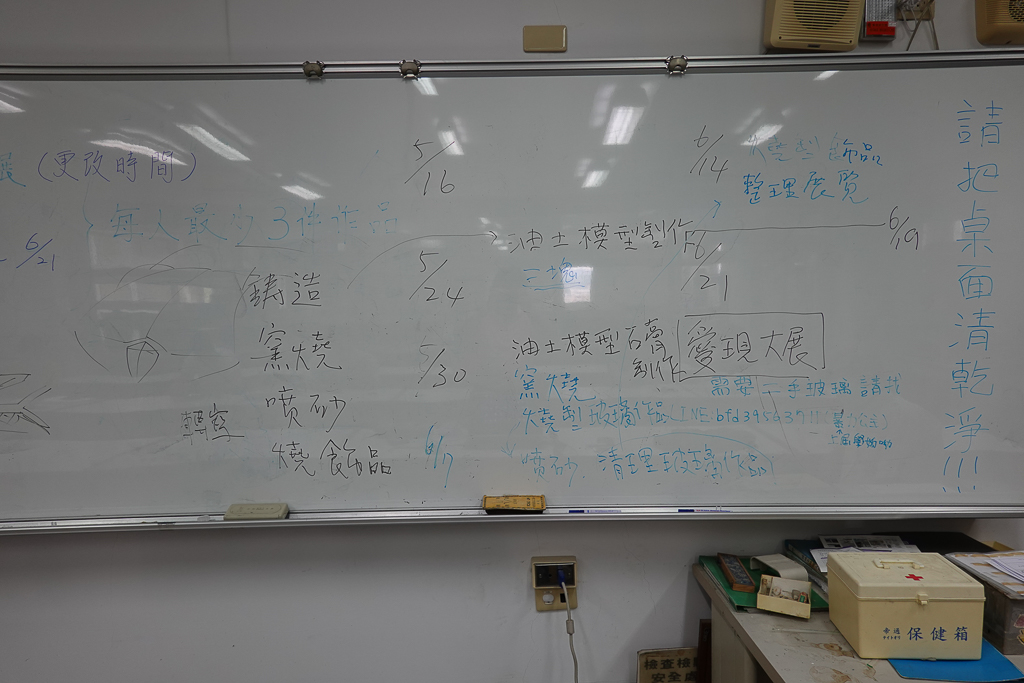 (更改時間)
6/21
每人最少3件作品
鑄造
窯燒
噴砂
燒飾品
轉寫
5/16
5/24
5/30
6/7
油土模型製作
三塊
油土模型石膏
製作
窯燒
燒型玻璃作品
噴砂.清理玻璃作品
6/14
飾品
整理展覽
6/21
6/19
愛現大展
需要二手玻璃請找
LINE:bfd39563711
請把桌面清乾淨!!!
保健箱
檢查
安全